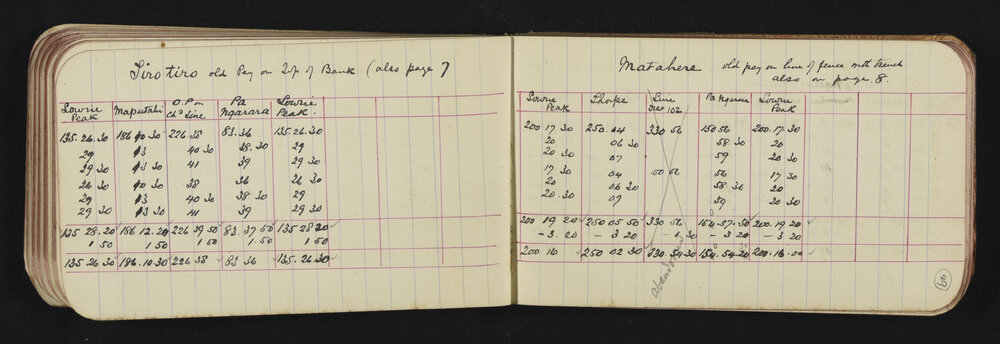 Tirotiro old Peg on Top of Bank (also page 7
Lowrie Peak Maputahi O.P. on Chd Line Pa Ngarara Lowrie Peak.
135.26.30 186 10 30 226 38 83.36 135.26.30
29 13 40 30 38.30 29
29 30 13 30 41 39 29 30
26 30 10 30 38 36 26 30
29 13 40 30 38 30 29
29 30 13 30 41 39 29 30
135 28.20 186 12.20 226 39 50 83.37 50 135 28 20
1 50 1 50 1 50 1.50 1 50
135 26 30 186.10.30 226 38 83 36 135.26.30
Matahere old peg on line of fence with trench
also on page 8.
Lowrie Peak Line Pa Ngarara Lowrie Peak
200 17 30 250.04 330 56 150 56 200.17.30
20 06 30 58 30 20
20 30 07 59 20 30
17 30 04 56 56 17 30
20 06 30 58 30 20
20.30 07 59 20 30
200 19 20 250 05 50 330 56 154-57-50 200.19.20
- 3.20 - 3 20 - 1 30 - 3 20 - 3 20
200 16 250 02 30 330.54.30 154.54.30 200.16.00
abandoned